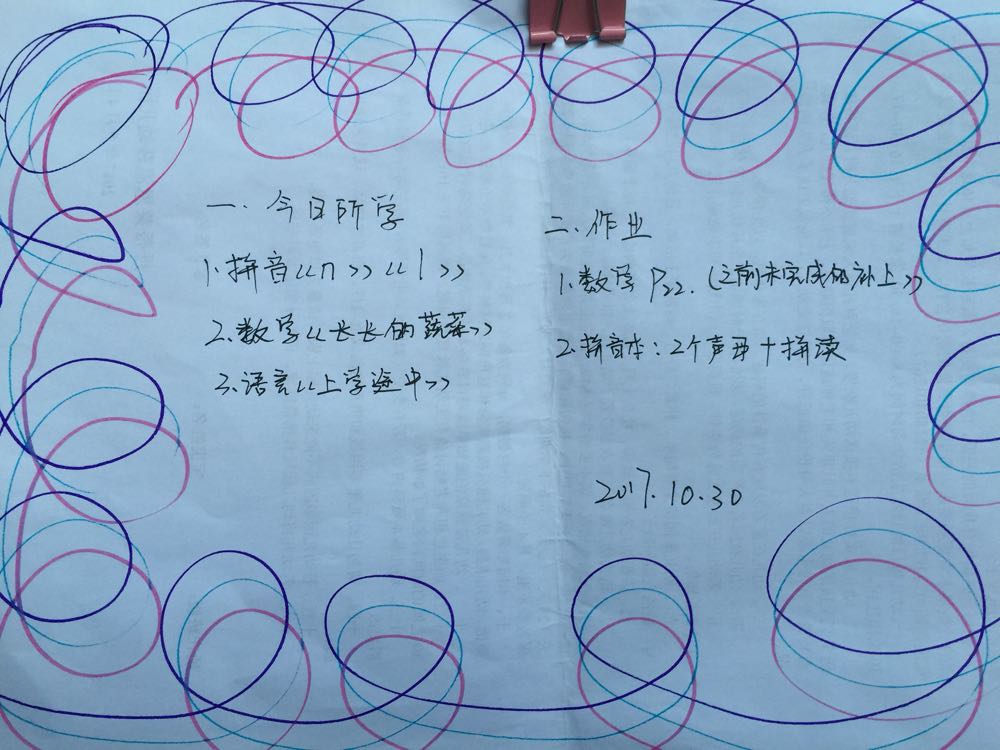 一. 今日所学
1. 拼音《n》《l》
2. 数学《长长的蔬菜》
3. 语言《上学途中》
二、作业
1. 数学 P22. (之前未完成的补上》
2. 拼音本：2个声母+拼读
2017.10.30